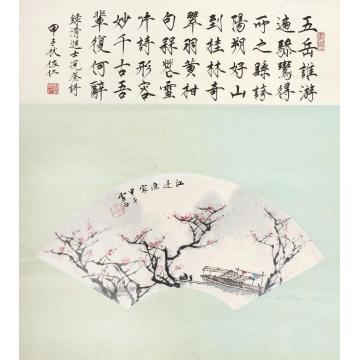 五岳誰游
遍驂鸞得
所之縣誇
陽朔好山
到桂林奇
翠羽黃柑
句雪
詩形容
妙千古吾
輩復何辭
錄清進士沈詩
甲子秋佐仁
江邊漁家
甲子